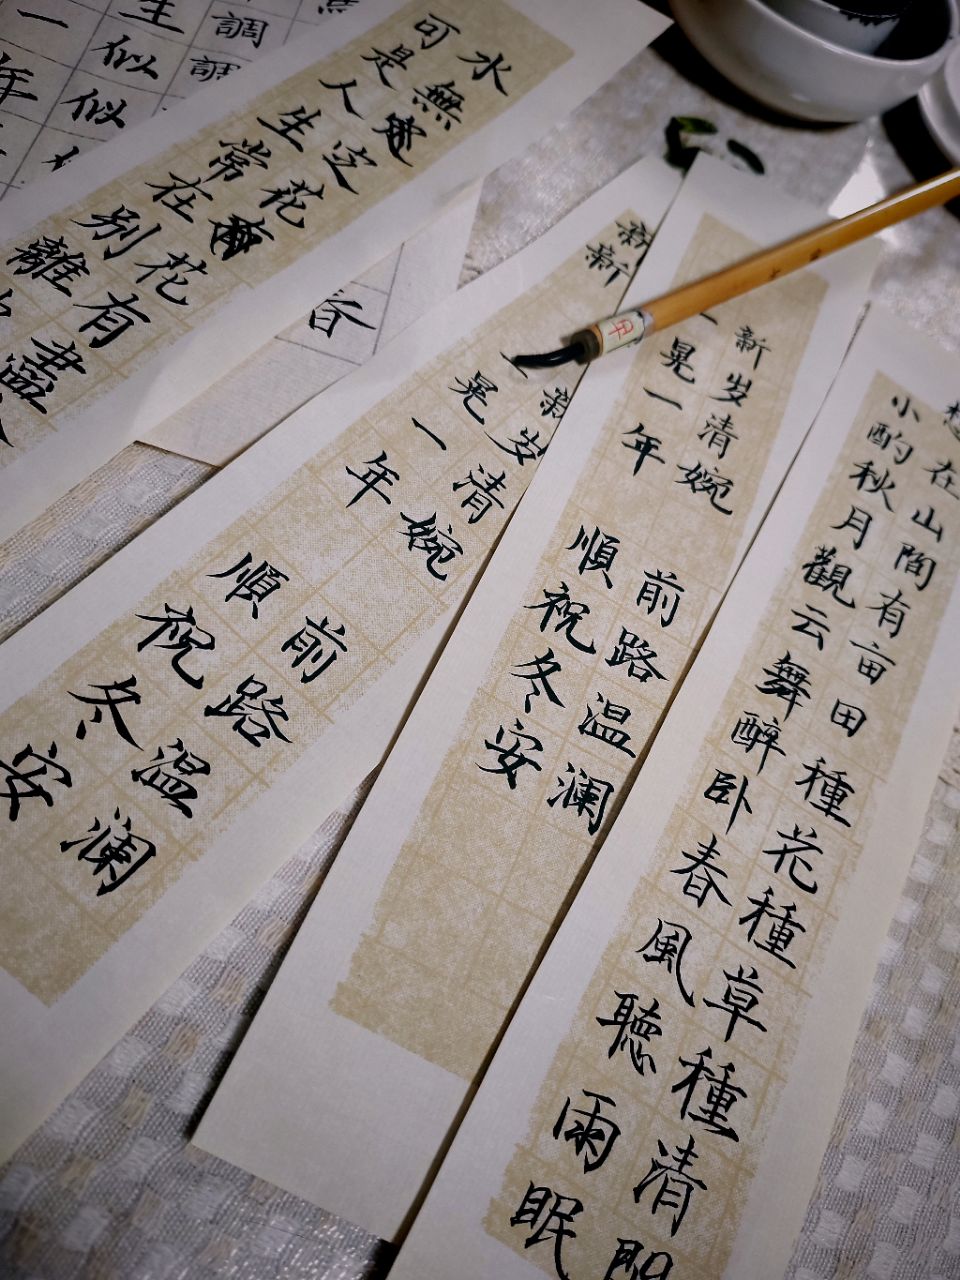 想在山間有亩田種花種草種清閒
小酌秋月觀云舞醉卧春風聽雨眠
新岁清婉
一晃一年
前路温澜
順祝冬安
新岁清婉
一晃一年
前路温澜
順祝冬安
新
新
水無定花有盡
可是人生常在别離中
香
調
調
生似似
一年
甲